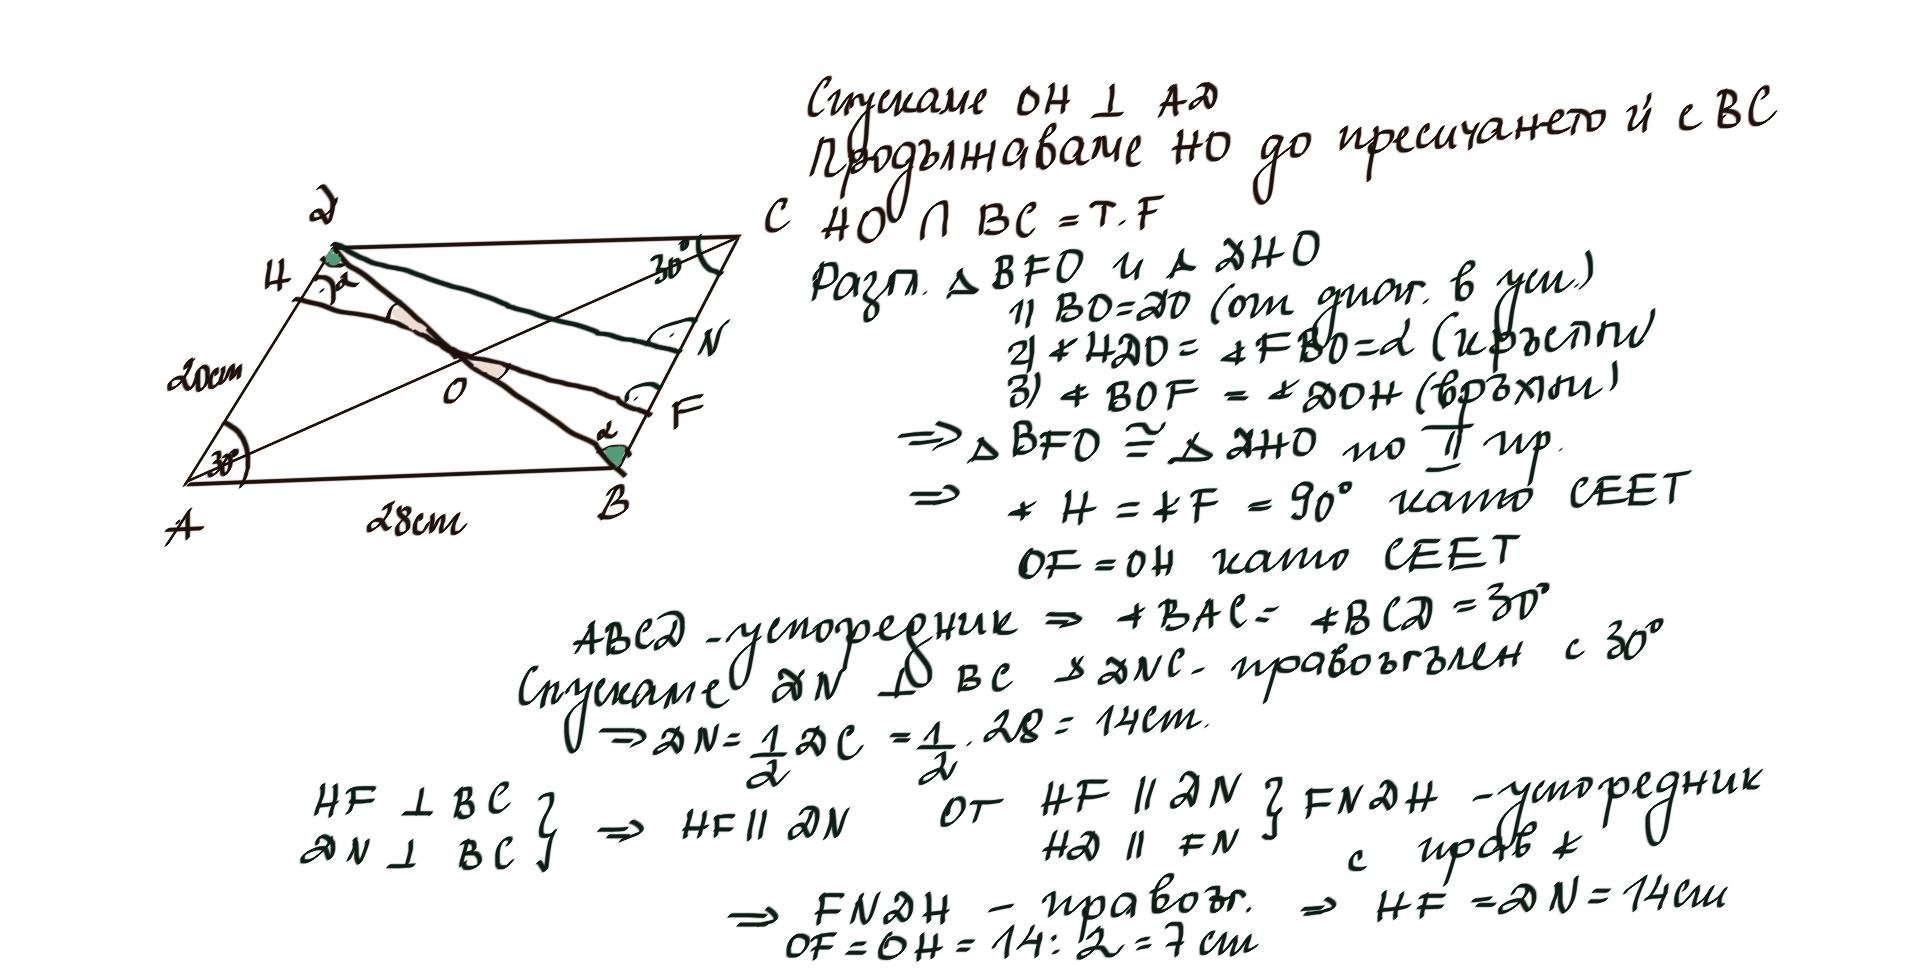 Спускаме OH ⊥ AD
Продължаваме HO до пресичането ѝ с BC
HO ∩ BC = т. F
Разгл. △ BFO и △ DHO
1) BO=DO (от диаг. в усп.)
2) ∢ HDO = ∢ FBO=α (кръстни)
3) ∢ BOF = ∢ DOH (връхни)
⇒ △ BFO ≅ △ DHO по II пр.
⇒ ∢ H = ∢ F = 90° като СЕЕТ
OF = OH като СЕЕТ
D
C
H
α
30°
N
20cm
O
F
α
30°
A
28cm
B
ABCD - успоредник ⇒ ∢ BAC = ∢ BCD = 30°
Спускаме DN ⊥ BC △ DNC - правоъгълен с 30°
⇒ DN = 1/2 DC = 1/2 . 28 = 14cm.
HF ⊥ BC
DN ⊥ BC } ⇒ HF || DN
От HF || DN
HD || FN } FNDH - успоредник
с прав ∢
⇒ FNDH - правоъг. ⇒ HF = DN = 14cm
OF = OH = 14 : 2 = 7 cm